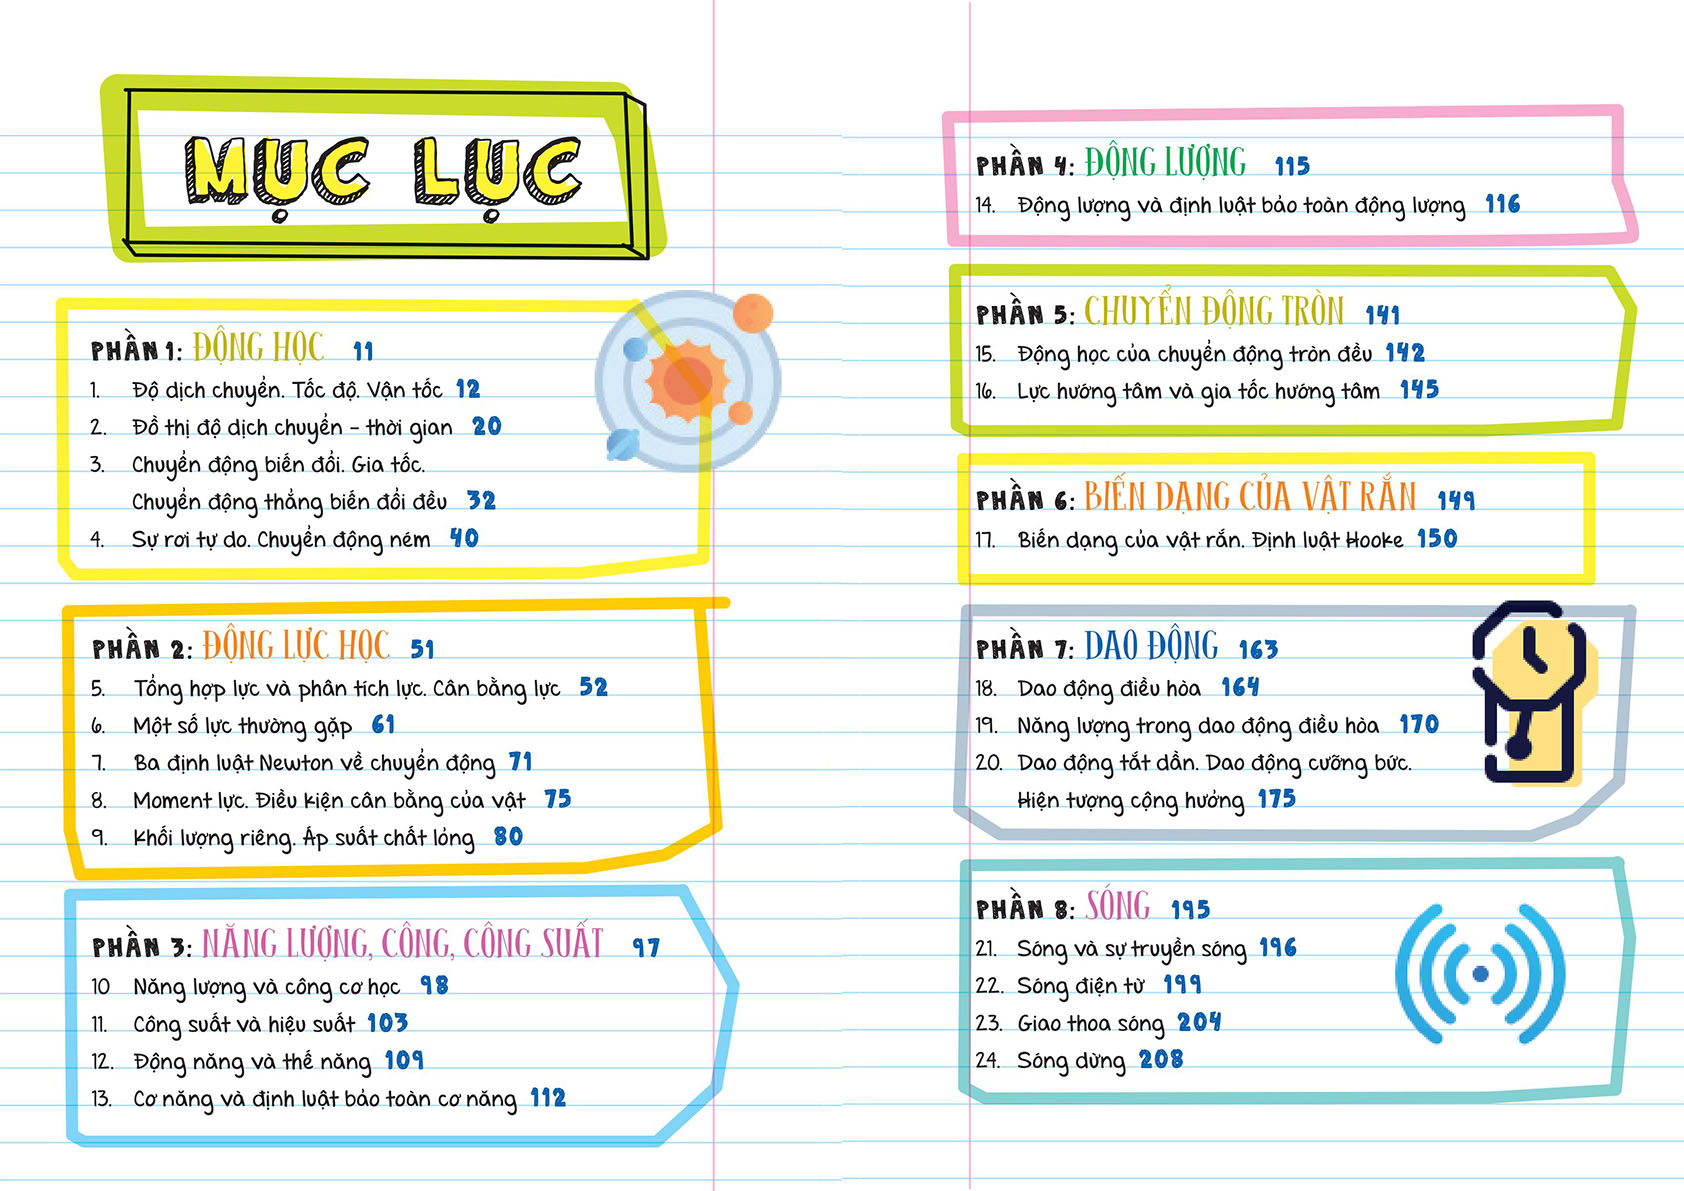 MỤC LỤC
PHẦN 1: ĐỘNG HỌC 11
1. Độ dịch chuyển. Tốc độ. Vận tốc 12
2. Đồ thị độ dịch chuyển - thời gian 20
3. Chuyển động biến đổi. Gia tốc.
Chuyển động thẳng biến đổi đều 32
4. Sự rơi tự do. Chuyển động ném 40
PHẦN 2: ĐỘNG LỰC HỌC 51
5. Tổng hợp lực và phân tích lực. Cân bằng lực 52
6. Một số lực thường gặp 61
7. Ba định luật Newton về chuyển động 71
8. Moment lực. Điều kiện cân bằng của vật 75
9. Khối lượng riêng. Áp suất chất lỏng 80
PHẦN 3: NĂNG LƯỢNG, CÔNG, CÔNG SUẤT 97
10 Năng lượng và công cơ học 98
11. Công suất và hiệu suất 103
12. Động năng và thế năng 109
13. Cơ năng và định luật bảo toàn cơ năng 112
PHẦN 4: ĐỘNG LƯỢNG 115
14. Động lượng và định luật bảo toàn động lượng 116
PHẦN 5: CHUYỂN ĐỘNG TRÒN 141
15. Động học của chuyển động tròn đều 142
16. Lực hướng tâm và gia tốc hướng tâm 145
PHẦN 6: BIẾN DẠNG CỦA VẬT RẮN 149
17. Biến dạng của vật rắn. Định luật Hooke 150
PHẦN 7: DAO ĐỘNG 163
18. Dao động điều hòa 164
19. Năng lượng trong dao động điều hòa 170
20. Dao động tắt dần. Dao động cưỡng bức.
Hiện tượng cộng hưởng 175
PHẦN 8: SÓNG 195
21. Sóng và sự truyền sóng 196
22. Sóng điện từ 199
23. Giao thoa sóng 204
24. Sóng dừng 208